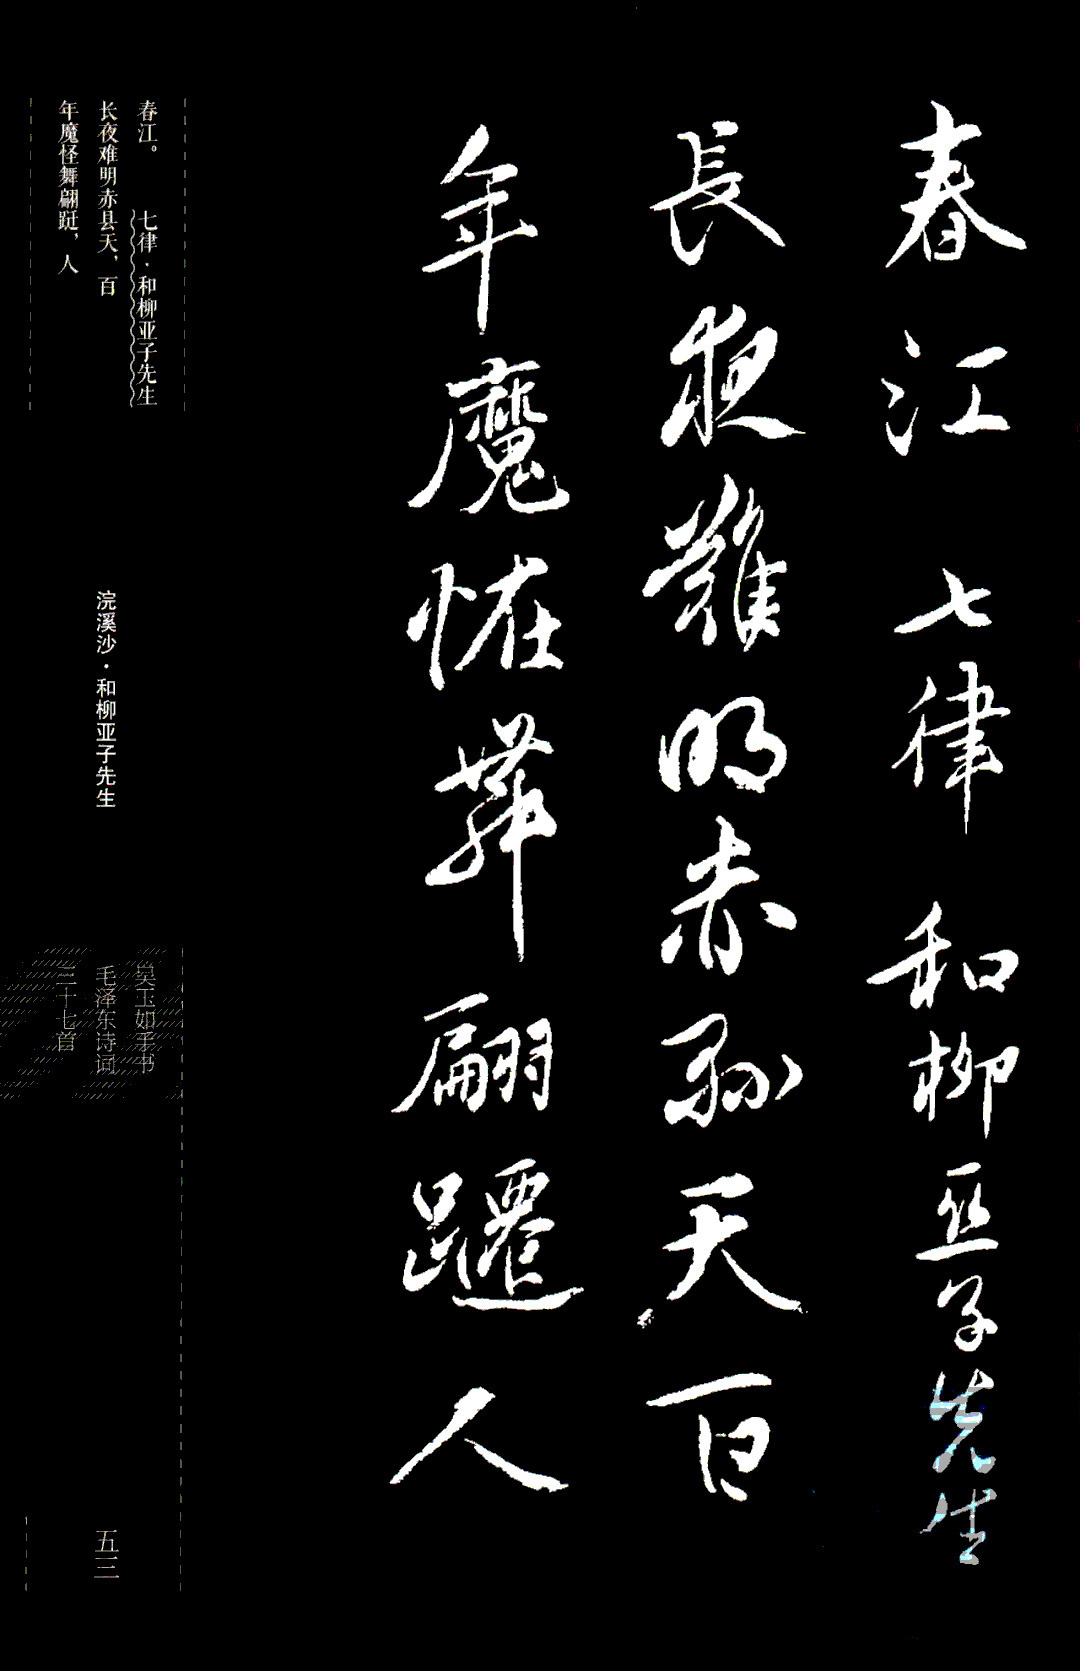 春江 七律 和柳亚子先生
長夜難明赤縣天百
年魔恠舞翩躚人
春江。 七律·和柳亚子先生
长夜难明赤县天，百
年魔怪舞翩跹，人
浣溪沙·和柳亚子先生
吴玉如手书
毛泽东诗词
三十七首
五三